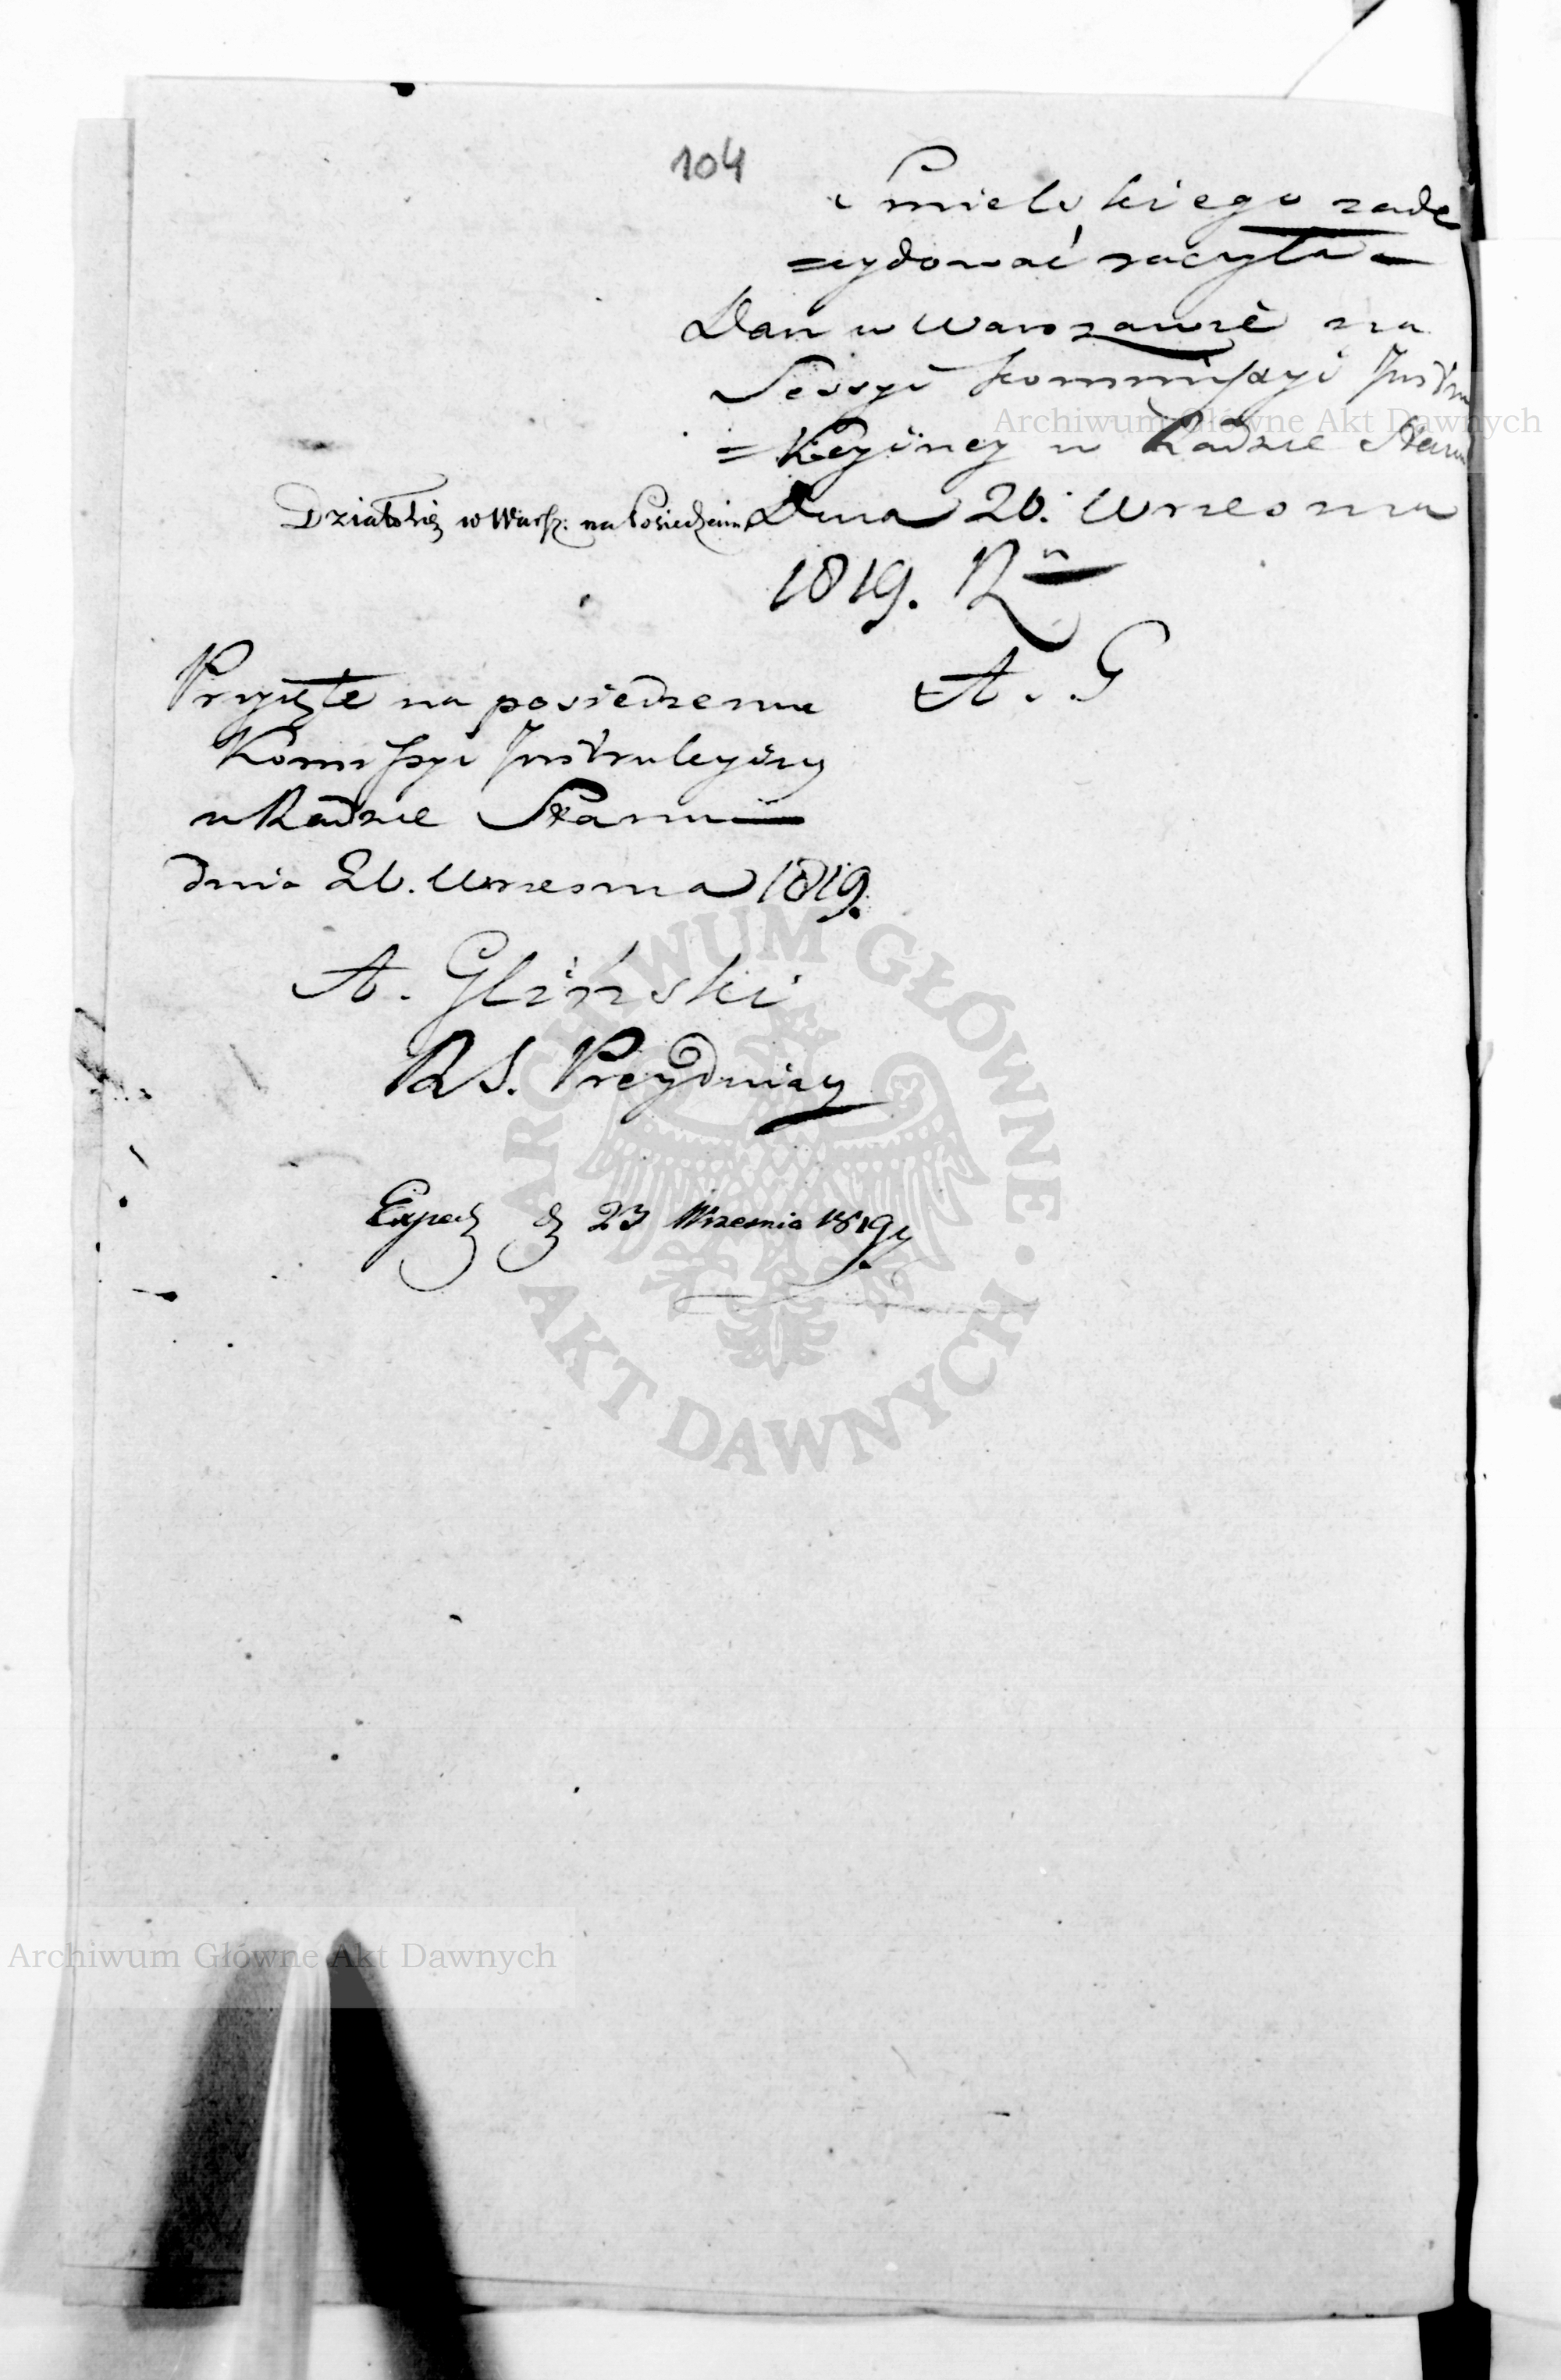 104
i Smielskiego zade
=cydować raczyła =
Dan w Warszawie na
Sessyi Kommissyi Instru
=kcyiney w Radzie Stanu
Działo się w Warsz: na Posiedzeniu
Dnia 20. Września
1819. R
A. G
Przyięte na posiedzeniu
Komissyi Instrukcyiney
w Radzie Stanu
dnia 20. Września 1819.
A. Gliński
R S. Prezyduiący
Exped d 23 Września 1819 r
Archiwum Główne Akt Dawnych
ARCHIWUM GŁÓWNE · AKT DAWNYCH ·
Archiwum Główne Akt Dawnych